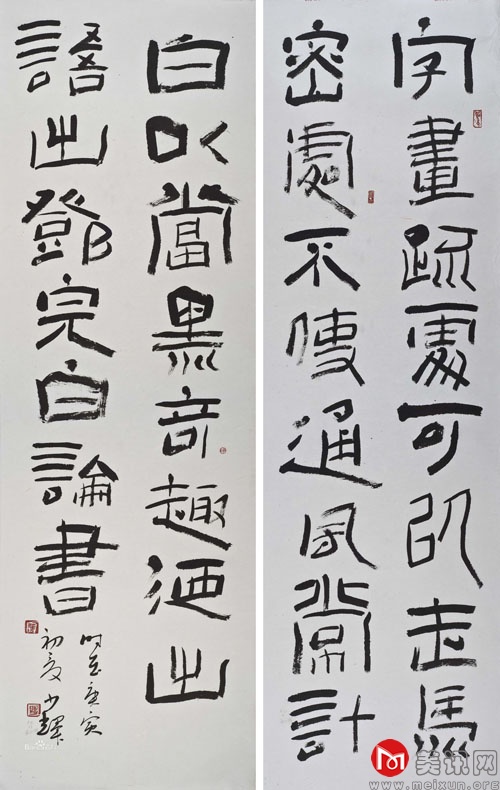 字畫疏處可以走馬
密處不使通風常計
白以當黑奇趣迺出
語出鄧完白論書
时在庚寅
初夏少
美讯网
www.meixun.org